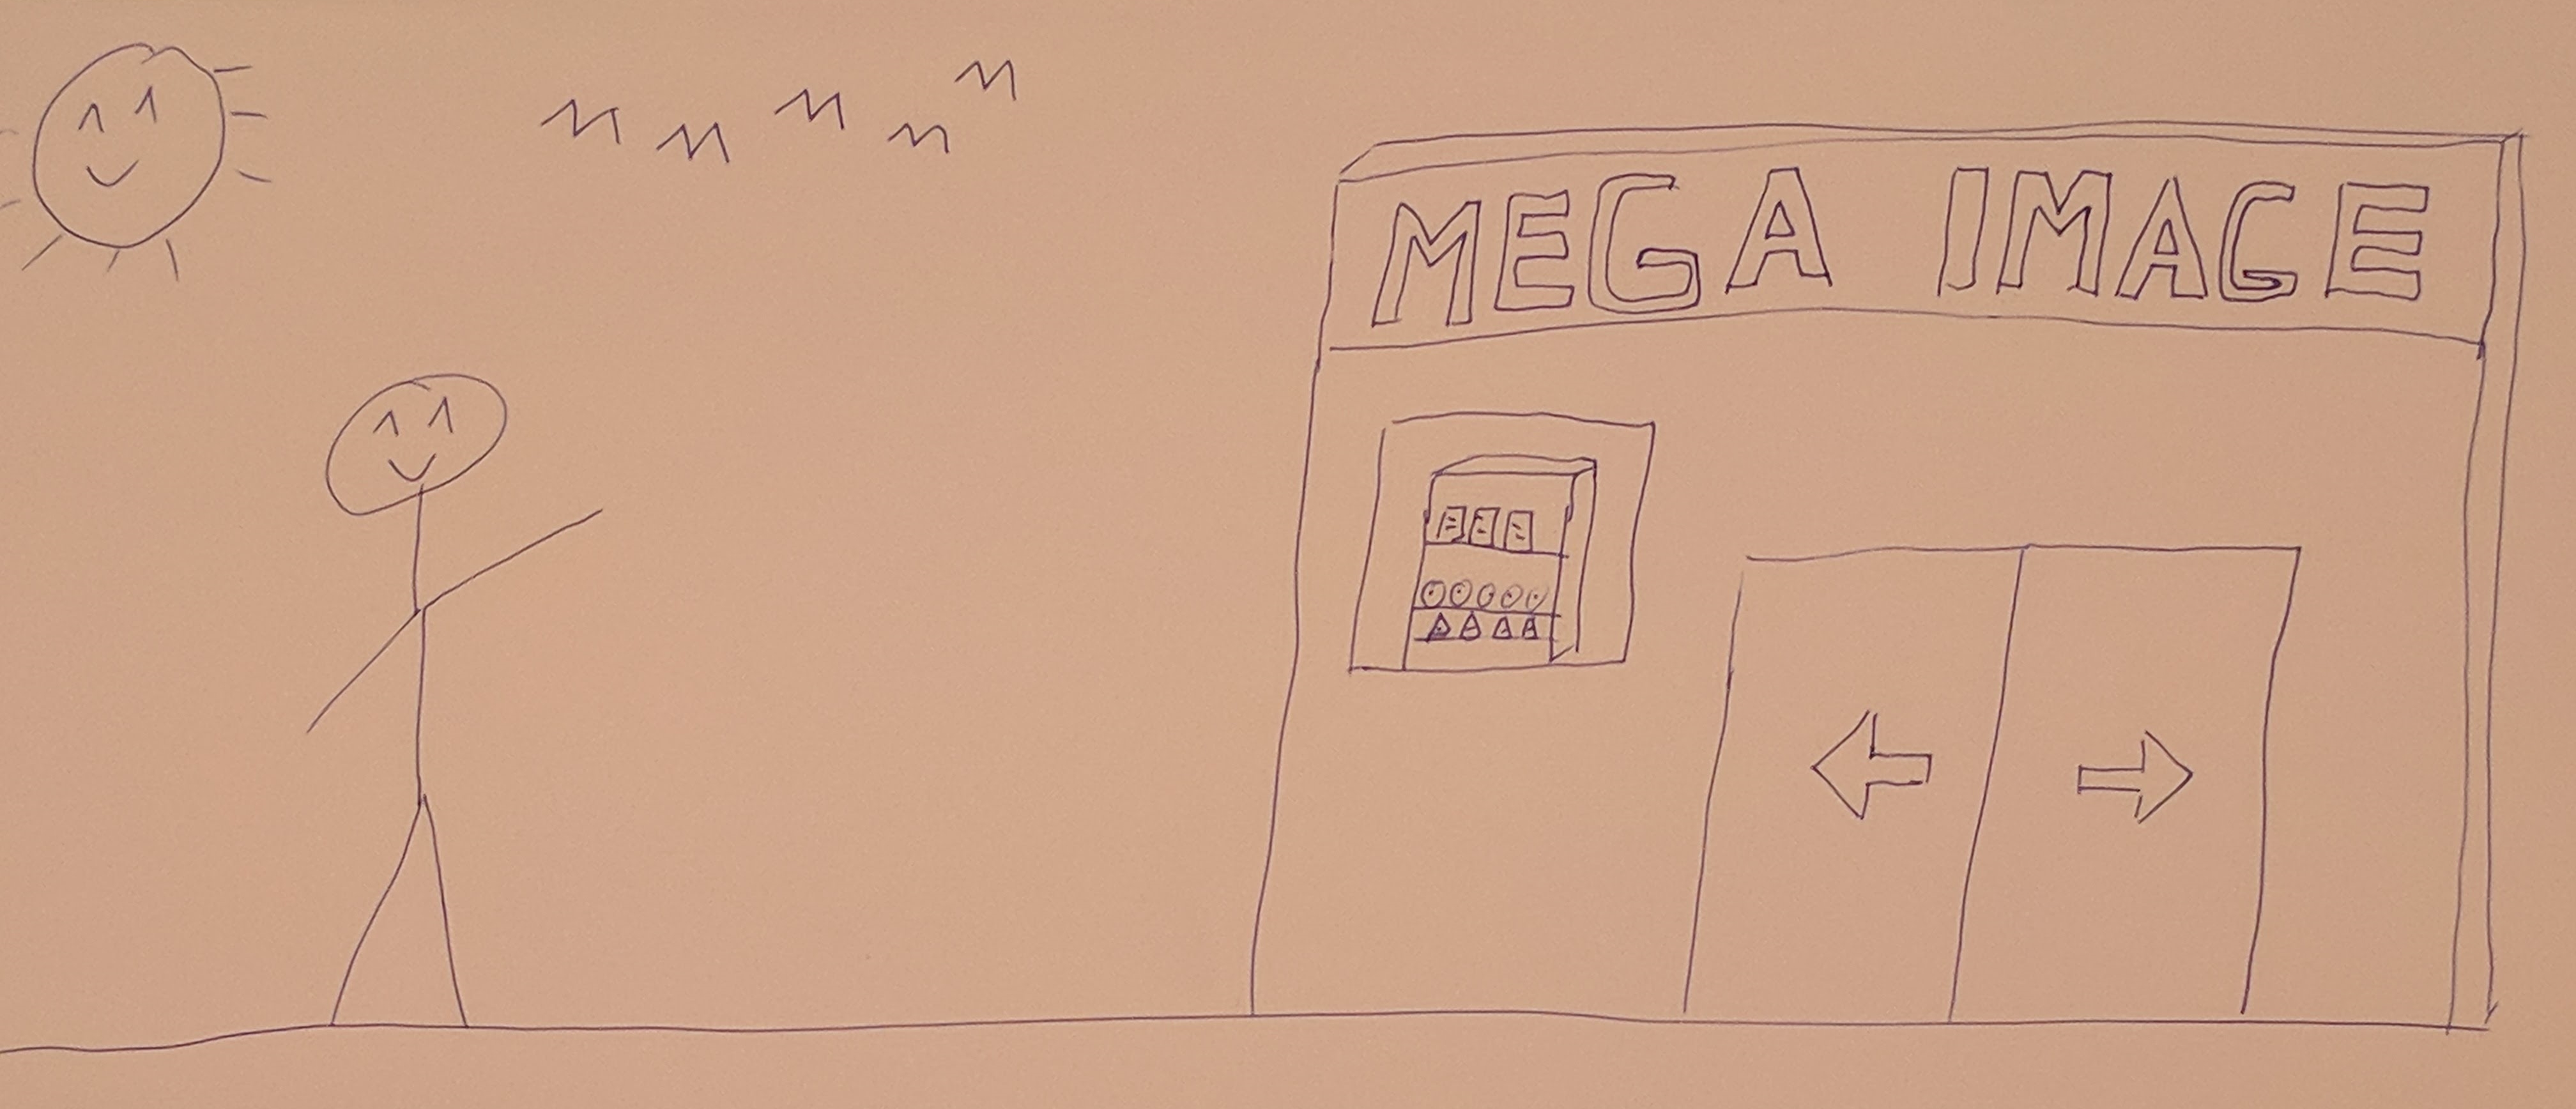 MEGA IMAGE